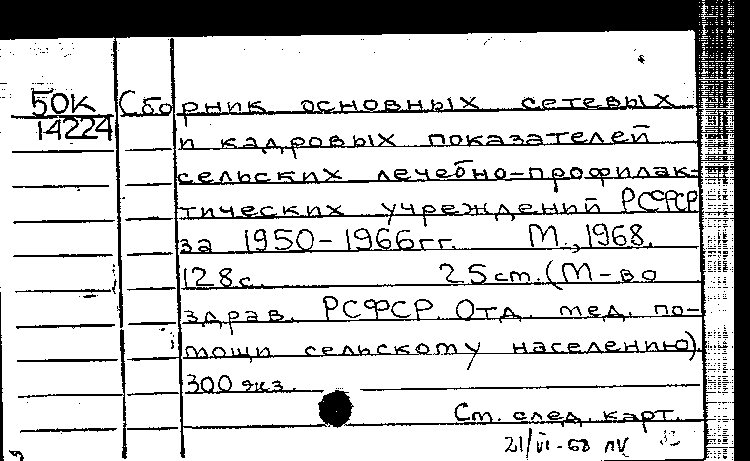 50К Сборник основных сетевых
14224
и кадровых показателей
сельских лечебно-профилак-
тических учреждений РСФСР
за 1950-1966гг. М., 1968.
128с. 25 ст. (М-во
здрав. РСФСР. Отд. мед. по-
мощи сельскому населению).
300 экз.
См. след. карт.
21/VI-68